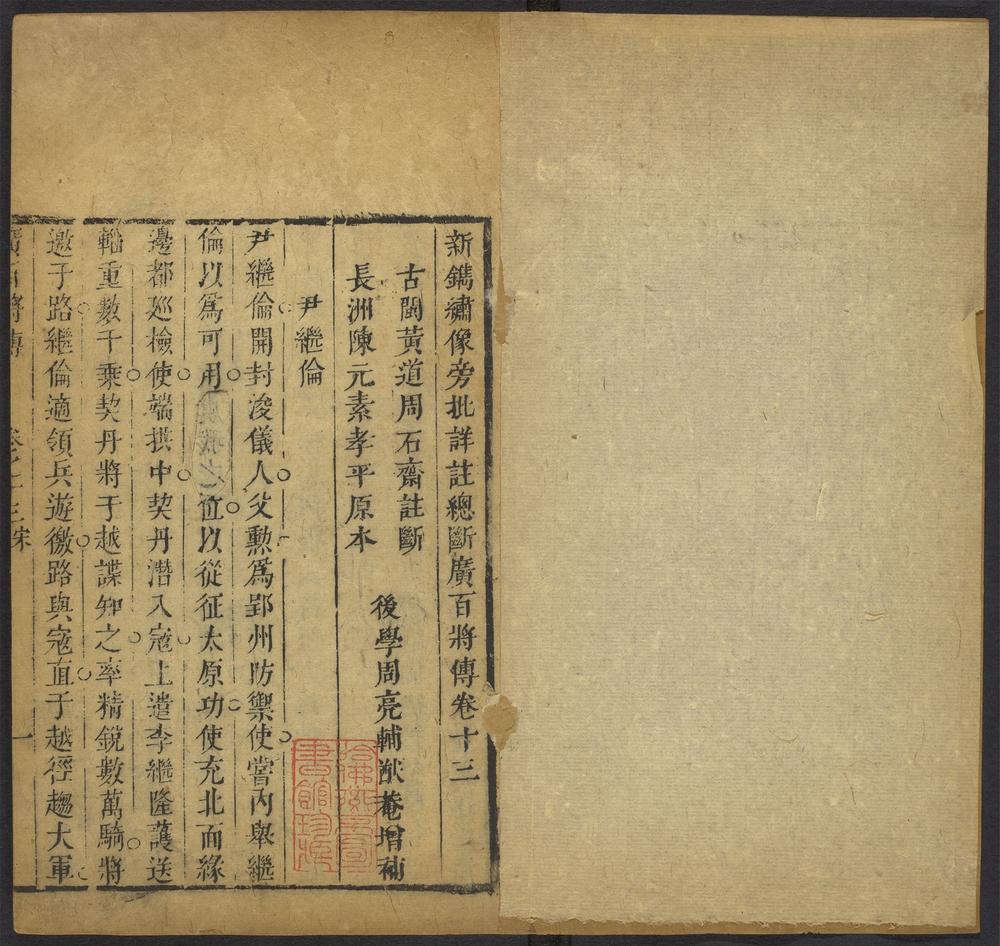 新鐫繡像旁批詳註總斷廣百將傳卷十三
古閩黃道周石齋註斷
長洲陳元素孝平原本
後學周亮輔猷菴增補
尹繼倫
尹繼倫開封浚儀人父勲爲郢州防禦使嘗內舉繼
倫以爲可用 以從征太原功使充北面緣
邊都巡檢使端拱中契丹潛入寇上遣李繼隆護送
輜重數千乘契丹將于越諜知之率精銳數萬騎將
邀于路繼倫適領兵遊徼路與寇直于越徑趨大軍
廣百將傳 卷之十三宋 一